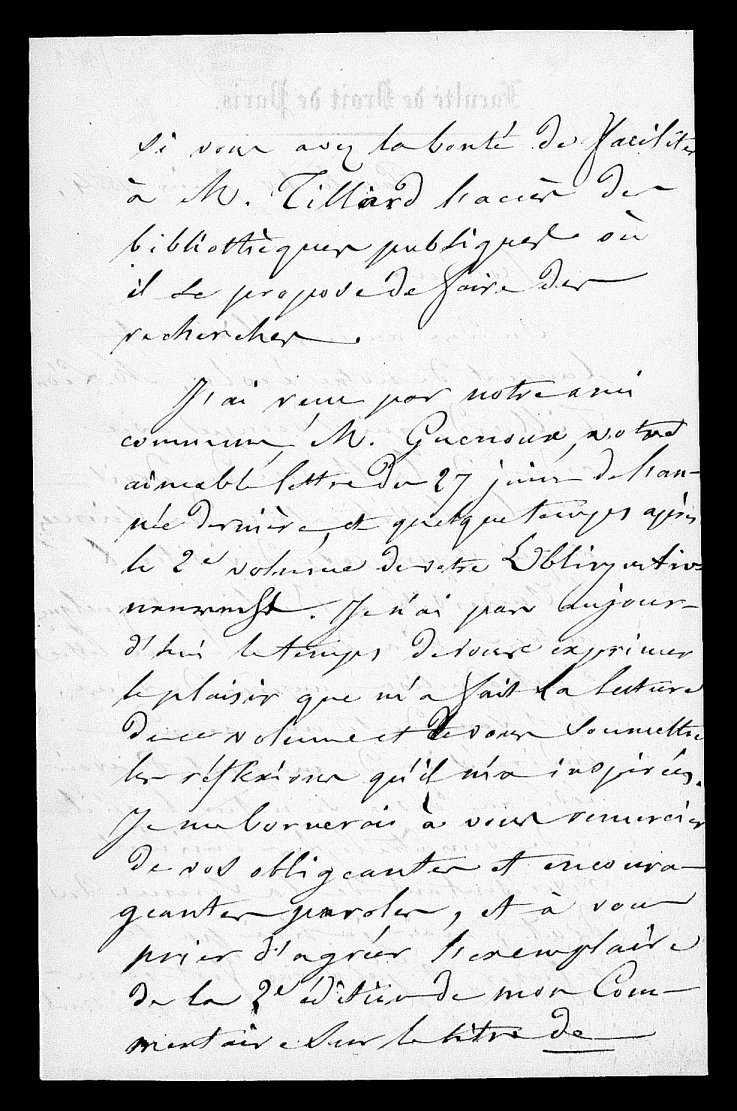 Faculté de Droit de Paris.
si vous avez la bonté de faciliter
à M. Tillard l'accès des
bibliothèques publiques où
il se propose de faire des
recherches.
J'ai reçu par notre ami
commun, M. Guenoux, votre
aimable lettre du 27 juin de l'an-
née dernière, et quelque temps après
le 2e volume de votre Obligation-
nenrecht. Je n'ai pas aujour-
d'hui le temps de vous exprimer
le plaisir que m'a fait la lecture
de ce volume et de vous soumettre
les réflexions qu'il m'a inspirées.
Je me bornerai à vous remercier
de vos obligeantes et encoura-
geantes paroles, et à vous
prier d'agréer l'exemplaire
de la 2e édition de mon Com-
mentaire sur le titre de